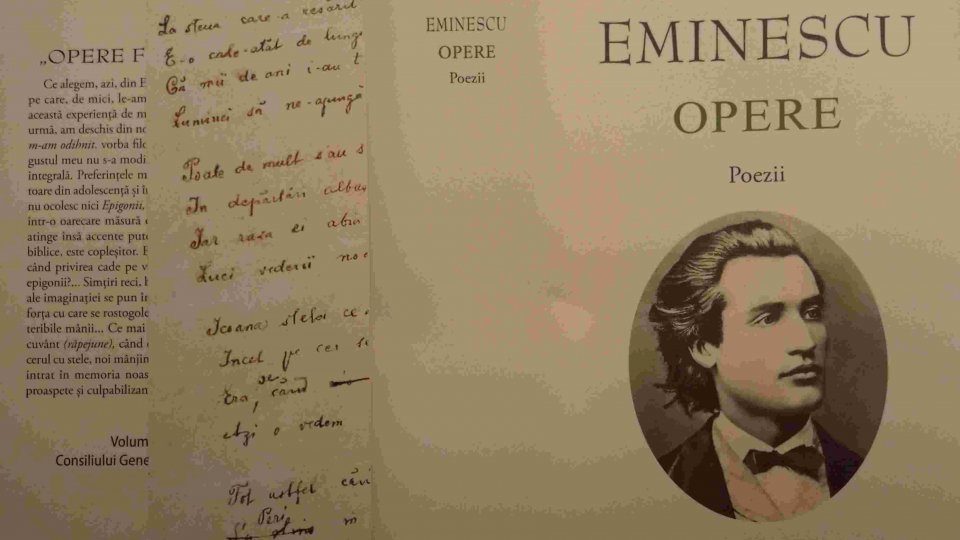 „OPERE F
Ce alegem, azi, din E
pe care, de mici, le-am
această experiență de m
urmă, am deschis din no
m-am odihnit. vorba filo
gustul meu nu s-a modi
integrală. Preferințele m
toare din adolescență și în
nu ocolesc nici Epigonii,
într-o oarecare măsură
atinge însă accente pute
biblice, este copleșitor. E
când privirea cade pe v
epigonii?... Simțiri reci, h
ale imaginației se pun în
forța cu care se rostogole
teribile mânii... Ce mai
cuvânt (răpejune), când
cerul cu stele, noi mânjim
intrat în memoria noas
proaspete și culpabilizan
Volum
Consiliului Gene
La steua care-a resărit
E-o cale-atât de lung
Că mii de ani i-au t
Luminei să ne-ajungă
Poate de mult s-au s
In depărtări alba
Iar raza ei abia
Luci vederii no
Icoana stelei ce
Incet pe cer s
Era, când
Azi o vedem
Tot astfel cân
Peri
EMINESCU
OPERE
Poezii
EMINESCU
OPERE
Poezii